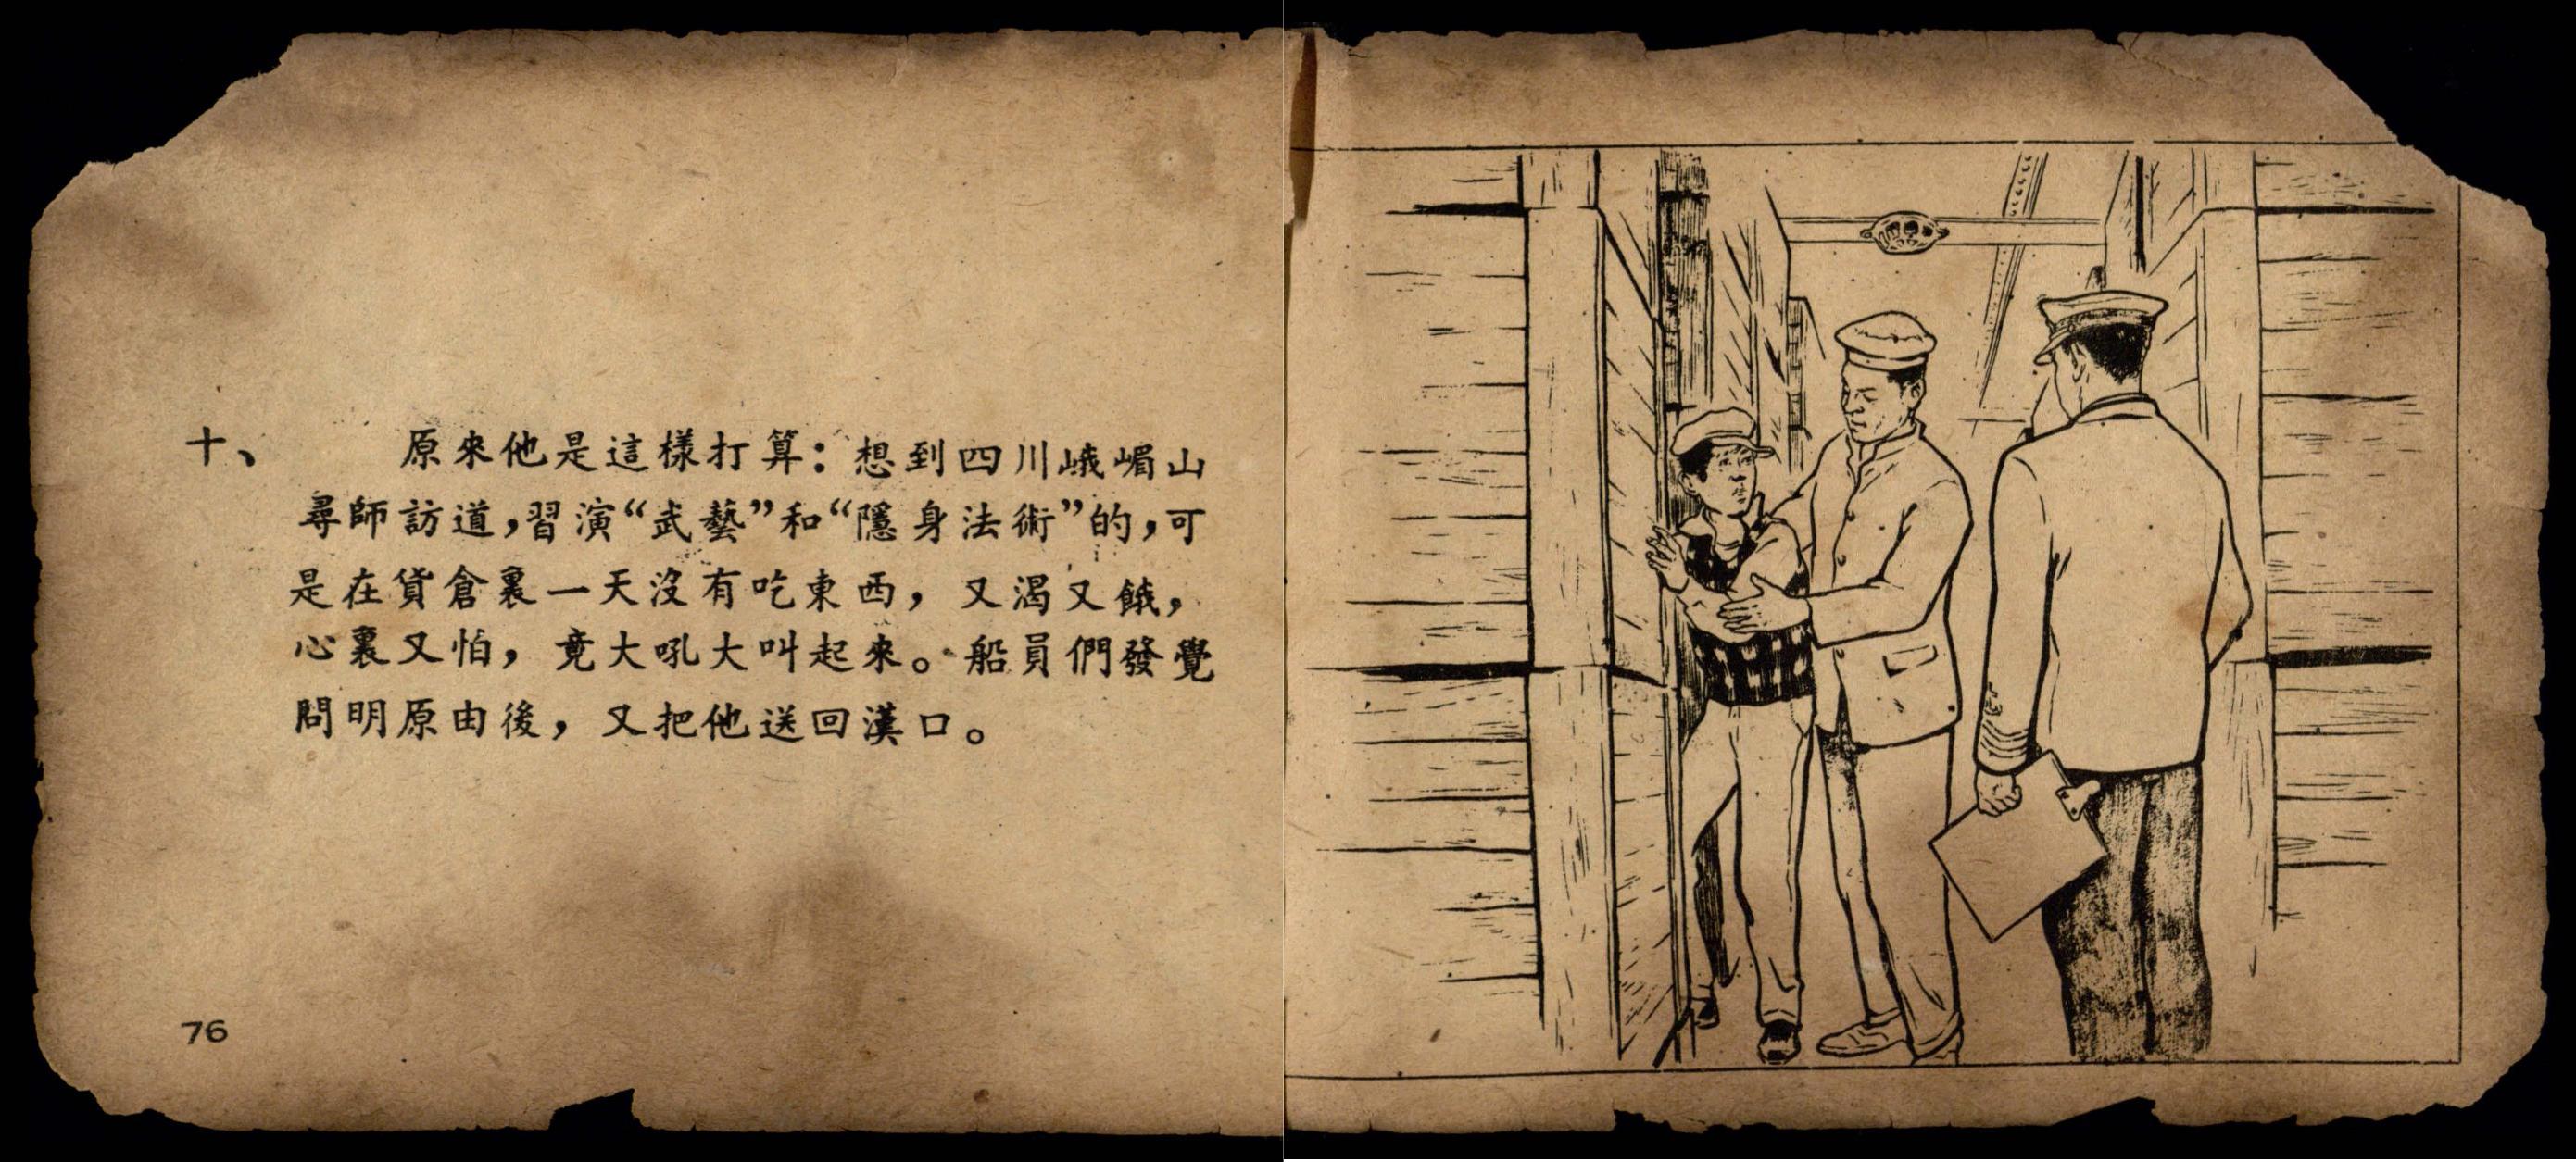 十、 原來他是這樣打算：想到四川峨嵋山
尋師訪道，習演“武藝”和“隱身法術”的，可
是在貨倉裏一天沒有吃東西，又渴又餓，
心裏又怕，竟大吼大叫起來。船員們發覺
問明原由後，又把他送回漢口。
76